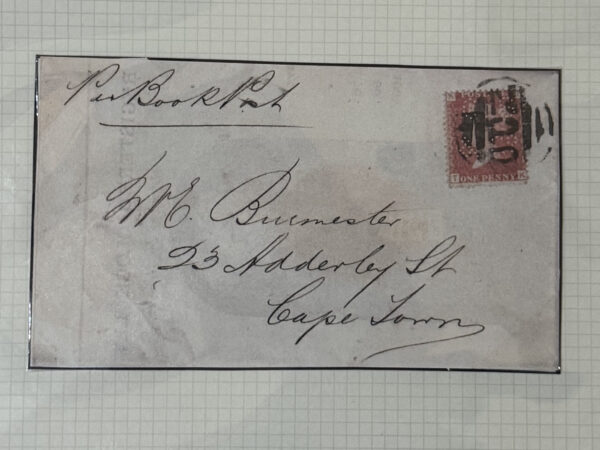 Per Book Post
W. E. Burmester
23 Adderley St
Cape Town
T ONE PENNY K